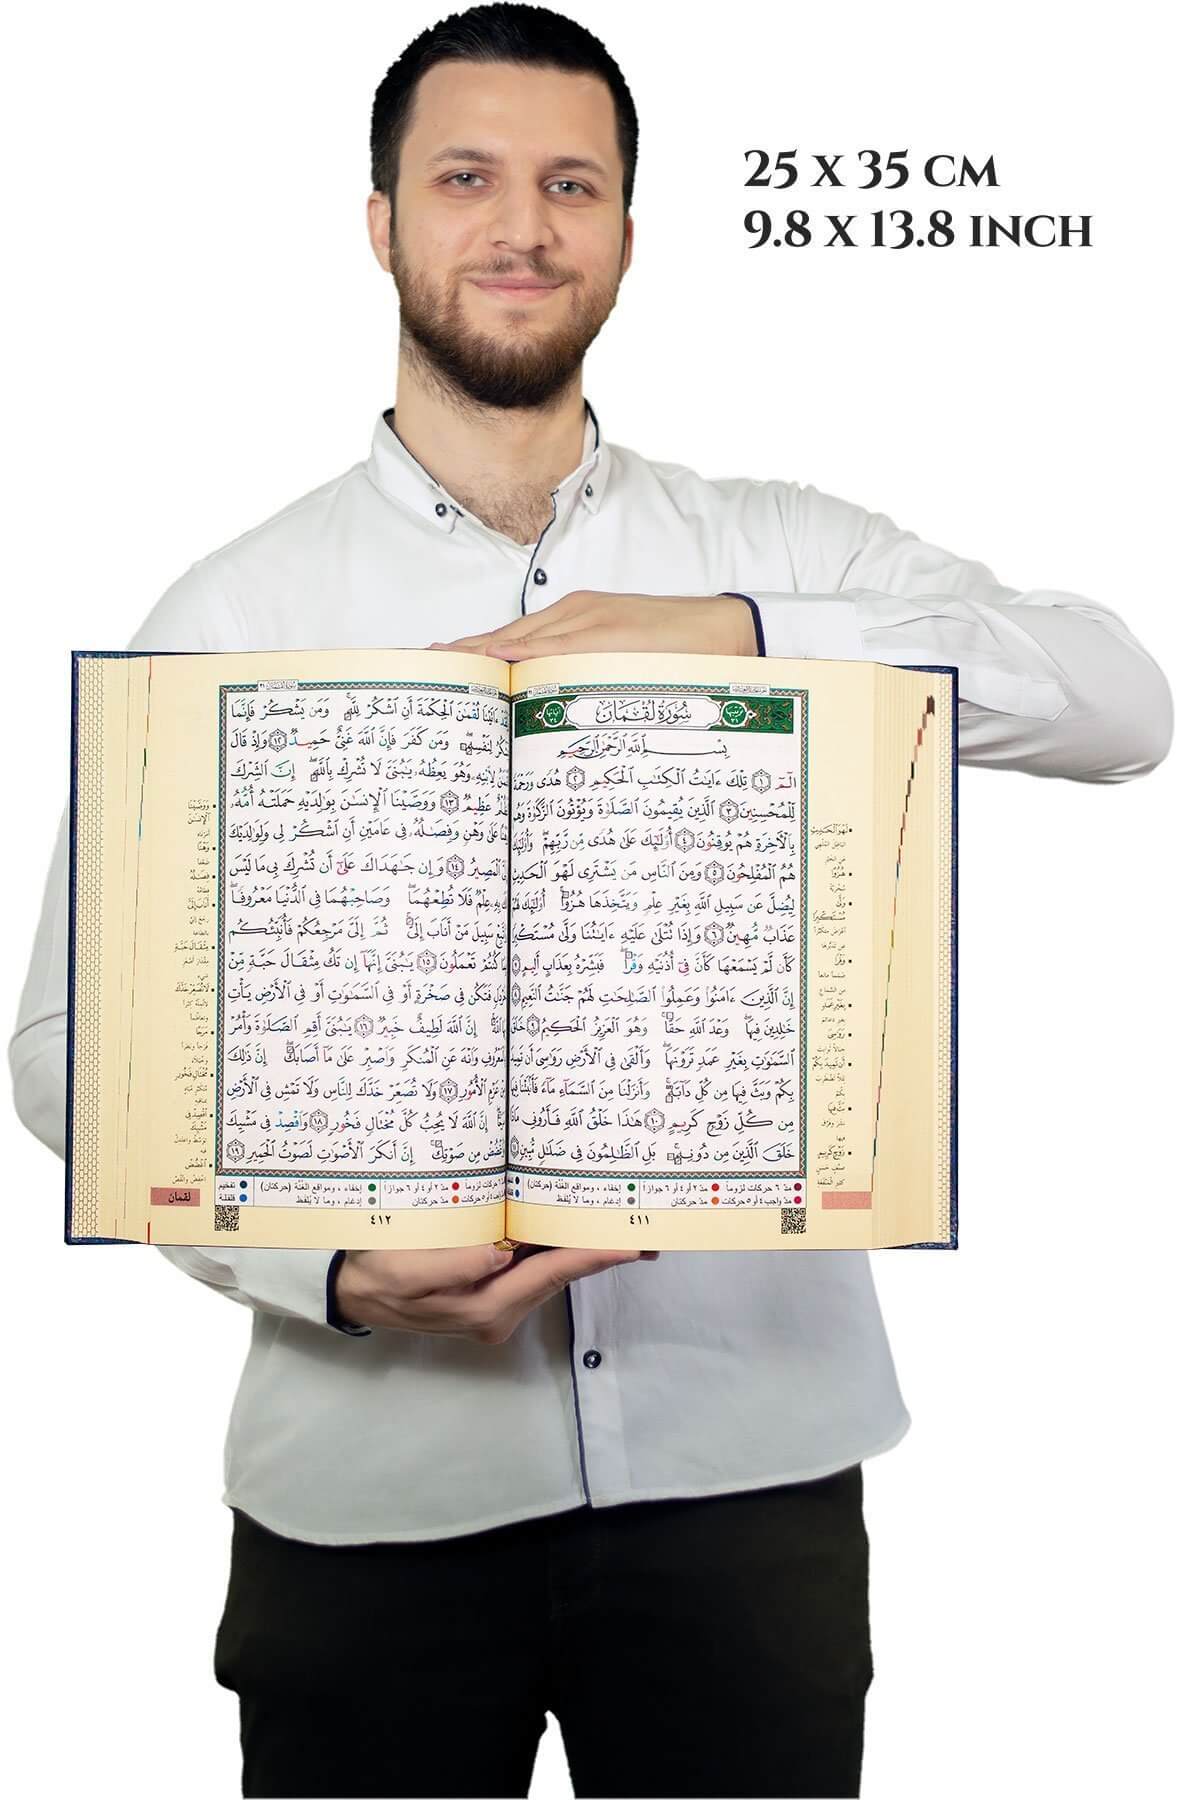 25 X 35 CM
9.8 X 13.8 INCH
سُورَةُ لُقْمَان
بِسْمِ اللَّهِ الرَّحْمَٰنِ الرَّحِيمِ
الٓمٓ ١ تِلْكَ ءَايَٰتُ الْكِتَٰبِ الْحَكِيمِ ٢ هُدًى وَرَحْمَةً
لِّلْمُحْسِنِينَ ٣ الَّذِينَ يُقِيمُونَ الصَّلَوٰةَ وَيُؤْتُونَ الزَّكَوٰةَ وَهُم
بِالْءَاخِرَةِ هُمْ يُوقِنُونَ ٤ أُوْلَٰٓئِكَ عَلَىٰ هُدًى مِّن رَّبِّهِمْ ۖ وَأُوْلَٰٓئِكَ
هُمُ الْمُفْلِحُونَ ٥ وَمِنَ النَّاسِ مَن يَشْتَرِى لَهْوَ الْحَدِيثِ
لِيُضِلَّ عَن سَبِيلِ اللَّهِ بِغَيْرِ عِلْمٍ وَيَتَّخِذَهَا هُزُوًا ۚ أُوْلَٰٓئِكَ لَهُمْ
عَذَابٌ مُّهِينٌ ٦ وَإِذَا تُتْلَىٰ عَلَيْهِ ءَايَٰتُنَا وَلَّىٰ مُسْتَكْبِرًا
كَأَن لَّمْ يَسْمَعْهَا كَأَنَّ فِىٓ أُذُنَيْهِ وَقْرًا ۖ فَبَشِّرْهُ بِعَذَابٍ أَلِيمٍ ٧
إِنَّ الَّذِينَ ءَامَنُوا وَعَمِلُوا الصَّٰلِحَٰتِ لَهُمْ جَنَّٰتُ النَّعِيمِ ٨
خَٰلِدِينَ فِيهَا ۖ وَعْدَ اللَّهِ حَقًّا ۚ وَهُوَ الْعَزِيزُ الْحَكِيمُ ٩ خَلَقَ
السَّمَٰوَٰتِ بِغَيْرِ عَمَدٍ تَرَوْنَهَا ۖ وَأَلْقَىٰ فِى الْأَرْضِ رَوَٰسِىَ أَن تَمِيدَ
بِكُمْ وَبَثَّ فِيهَا مِن كُلِّ دَآبَّةٍ ۚ وَأَنزَلْنَا مِنَ السَّمَآءِ مَآءً فَأَنۢبَتْنَا فِيهَا
مِن كُلِّ زَوْجٍ كَرِيمٍ ١٠ هَٰذَا خَلْقُ اللَّهِ فَأَرُونِى مَاذَا
خَلَقَ الَّذِينَ مِن دُونِهِ ۚ بَلِ الظَّٰلِمُونَ فِى ضَلَٰلٍ مُّبِينٍ ١١
مدّ ٦ حركات لزوماً مدّ ٢ أو ٤ أو ٦ جوازاً إخفاء، ومواقع الغُنّة (حركتان)
مدّ واجب ٤ أو ٥ حركات مدّ حركتان إدغام، وما لا يُلفَظ
٤١١
ءَاتَيْنَا لُقْمَٰنَ الْحِكْمَةَ أَنِ اشْكُرْ لِلَّهِ ۚ وَمَن يَشْكُرْ فَإِنَّمَا
يَشْكُرُ لِنَفْسِهِ ۖ وَمَن كَفَرَ فَإِنَّ اللَّهَ غَنِىٌّ حَمِيدٌ ١٢ وَإِذْ قَالَ
لِابْنِهِ وَهُوَ يَعِظُهُ يَٰبُنَىَّ لَا تُشْرِكْ بِاللَّهِ ۖ إِنَّ الشِّرْكَ
لَظُلْمٌ عَظِيمٌ ١٣ وَوَصَّيْنَا الْإِنسَٰنَ بِوَٰلِدَيْهِ حَمَلَتْهُ أُمُّهُ
عَلَىٰ وَهْنٍ وَفِصَٰلُهُ فِى عَامَيْنِ أَنِ اشْكُرْ لِى وَلِوَٰلِدَيْكَ
الْمَصِيرُ ١٤ وَإِن جَٰهَدَاكَ عَلَىٰٓ أَن تُشْرِكَ بِى مَا لَيْسَ
لَكَ بِهِ عِلْمٌ فَلَا تُطِعْهُمَا ۖ وَصَاحِبْهُمَا فِى الدُّنْيَا مَعْرُوفًا ۖ
سَبِيلَ مَنْ أَنَابَ إِلَىَّ ۚ ثُمَّ إِلَىَّ مَرْجِعُكُمْ فَأُنَبِّئُكُم
بِمَا كُنتُمْ تَعْمَلُونَ ١٥ يَٰبُنَىَّ إِنَّهَآ إِن تَكُ مِثْقَالَ حَبَّةٍ مِّنْ
خَرْدَلٍ فَتَكُن فِى صَخْرَةٍ أَوْ فِى السَّمَٰوَٰتِ أَوْ فِى الْأَرْضِ يَأْتِ
بِهَا اللَّهُ ۚ إِنَّ اللَّهَ لَطِيفٌ خَبِيرٌ ١٦ يَٰبُنَىَّ أَقِمِ الصَّلَوٰةَ وَأْمُرْ
بِالْمَعْرُوفِ وَانْهَ عَنِ الْمُنكَرِ وَاصْبِرْ عَلَىٰ مَآ أَصَابَكَ ۖ إِنَّ ذَٰلِكَ
مِنْ عَزْمِ الْأُمُورِ ١٧ وَلَا تُصَعِّرْ خَدَّكَ لِلنَّاسِ وَلَا تَمْشِ فِى الْأَرْضِ
مَرَحًا ۖ إِنَّ اللَّهَ لَا يُحِبُّ كُلَّ مُخْتَالٍ فَخُورٍ ١٨ وَاقْصِدْ فِى مَشْيِكَ
وَاغْضُضْ مِن صَوْتِكَ ۚ إِنَّ أَنكَرَ الْأَصْوَٰتِ لَصَوْتُ الْحَمِيرِ ١٩
إخفاء، ومواقع الغُنّة (حركتان) تفخيم
إدغام، وما لا يُلفَظ قلقلة
لقمان
٤١٢